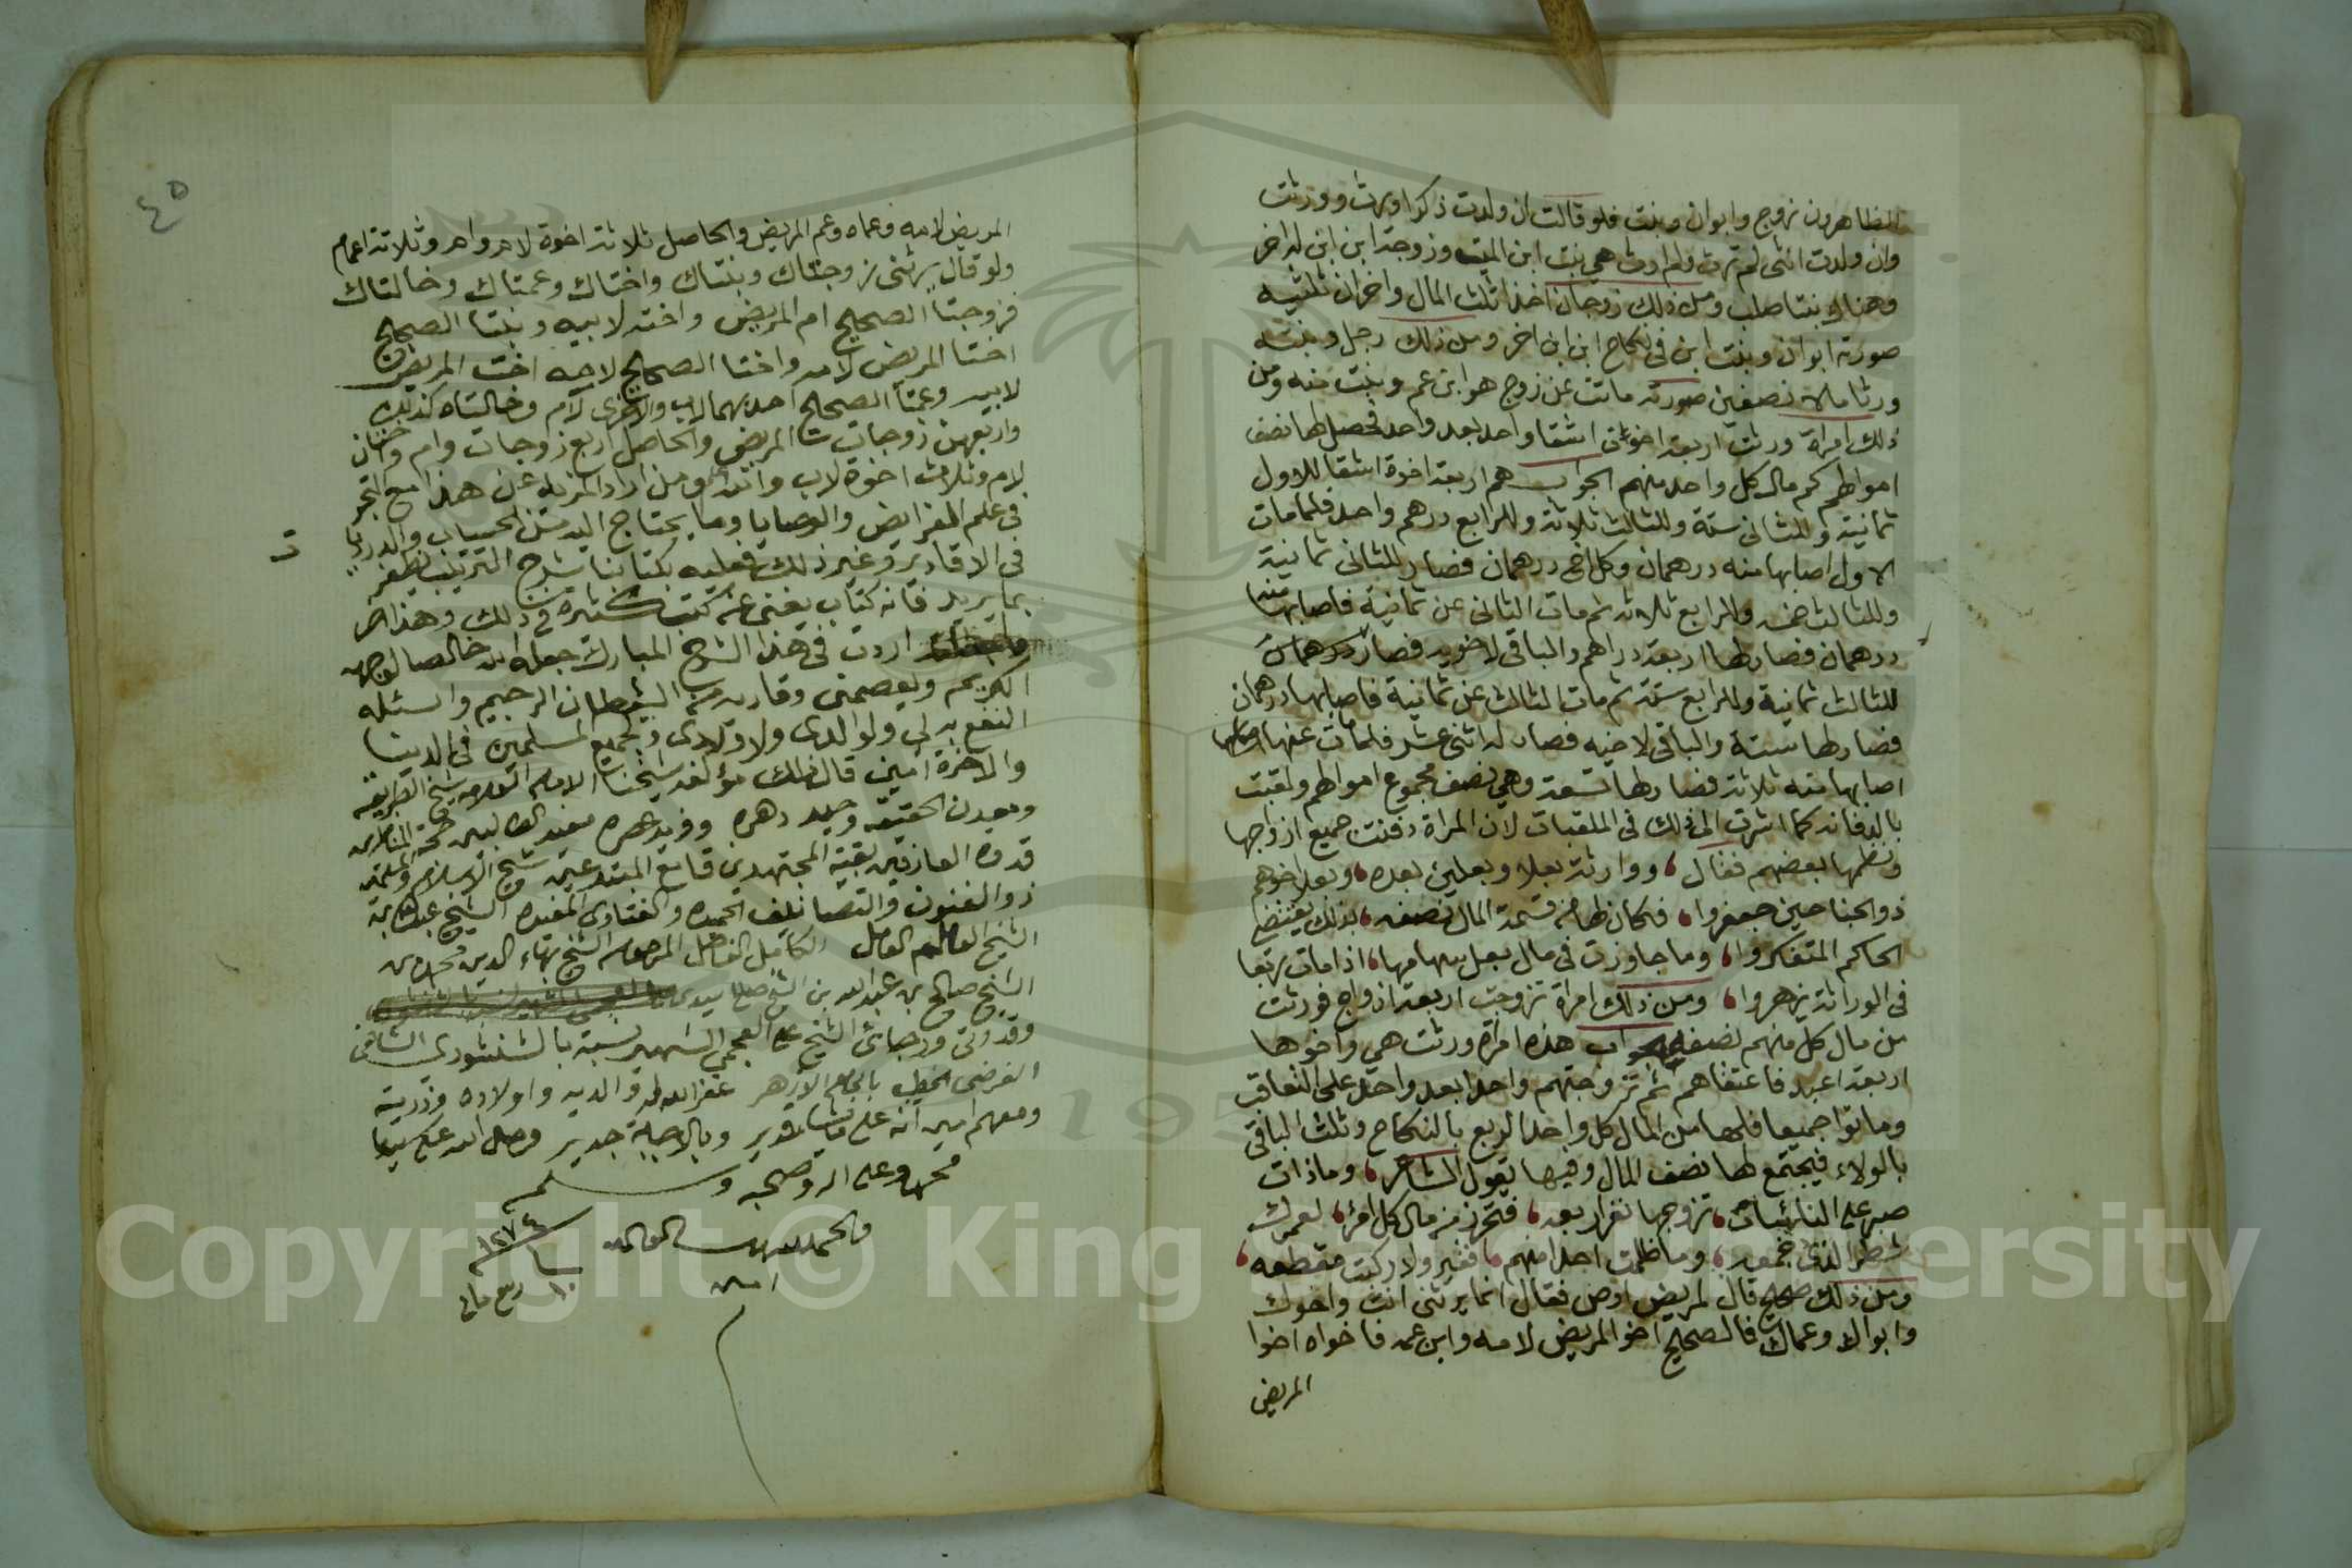 الظاهرون زوج وابوان وبنت فلو قالت ان ولدت ذكرا ورث وورثت
وان ولدت انثى لم ترث ولم ارث هي بنت ابن الميت وزوجة ابن ابن له اخر
وهناك بنتا صلب ومن ذلك زوجان اخذا ثلث المال واخران ثلثيه
صورته ابوان وبنت ابن في نكاح ابن ابن اخر ومن ذلك رجل وبنته
ورثا مالا نصفين صورته ماتت عن زوج هو ابن عم وبنت منه ومن
ذلك امراة ورثت اربعة اخوة اشقا واحد بعد واحد فحصل لها نصف
اموالهم كم مال كل واحد منهم الجواب هم اربعة اخوة اشقا للاول
ثمانية وللثاني ستة وللثالث ثلاثة وللرابع درهم واحد فلما مات
الاول اصابها منه درهمان وكل اخ درهمان فصار للثاني ثمانية
وللثالث خمسة وللرابع ثلاثة ثم مات الثاني عن ثمانية فاصابها منه
درهمان فصار لها اربعة دراهم والباقي لاخويه فصار
للثالث ثمانية وللرابع ستة ثم مات الثالث عن ثمانية فاصابها درهمان
فصار لها ستة والباقي لاخيه فصار له اثنى عشر فلما مات عنها
اصابها منه ثلاثة فصار لها تسعة وهي نصف مجموع اموالهم ولقبت
بالدفانه كما اشرت الى ذلك في الملقبات لان المراة دفنت جميع ازواجها
ونظمها بعضهم فقال ، ووارثة بعلا وبعلين بعده ، وبعلا اخوهم
ذو الجناحين جعفروا ، فكان لها من قسمة المال نصفه ، بذلك يقضي
الحاكم المتفكروا ، وما جاوزت في مال بعل سهامها ، اذا مات ربعا
في الوراثة يزهروا ، ومن ذلك امراة تزوجت اربعة ازواج فورثت
من مال كل منهم نصفه الجواب هذه امراة ورثت هي واخوها
اربعة اعبد فاعتقاهم ثم تزوجتهم واحدا بعد واحد على التعاقب
وماتوا جميعا فلها من المال كل واحد الربع بالنكاح وثلث الباقي
بالولاء فيجتمع لها نصف المال وفيها يقول الشاعر ، وما ذات
صبر على النائبات ، تزوجها نفر اربعه ، فتحرز من مال كل امرء ، لعمرك
شطر الذي جمعه ، وما ظلمت احدا منهم ، فقير ولا ركبت مقطعه ،
ومن ذلك صحيح قال لمريض اوص فقال انما يرثني انت واخوك
وابواك وعماك فالصحيح اخو المريض لامه وابن عمه فاخواه اخوا
المريض
٤٥
المريض لامه وعماه وعم المريض والحاصل ثلاثة اخوة لام وام وثلاثة اعمام
ولو قال يرثني زوجتاك وبنتاك واختاك وعمتاك وخالتاك
فزوجتا الصحيح ام المريض واخته لابيه وبنتا الصحيح
اختا المريض لامه واختا الصحيح لامه اخت المريض
لابيه وعمتا الصحيح احديهما لاب والاخرى لام وخالتاه كذلك
واربعهن زوجات المريض والحاصل اربع زوجات وام واختان
لام وثلاث اخوة لاب ومن اراد المزيد عن هذا مع التبحر
في علم الفرايض والوصايا وما يحتاج اليه من الحساب والدور
في الاقارير وغير ذلك فعليه بكتابنا شرح الترتيب يظفر
بما يريد فانه كتاب يغني عن كتب كثيرة في ذلك وهذا اخر
اردت في هذا الشرح المبارك جعله الله خالصا لوجهه
الكريم ويعصمني وقاريه من الشيطان الرجيم واسئله
النفع به لي ولوالدي ولاولادي ولجميع المسلمين في الدنيا
والاخرة امين قال ذلك مؤلفه شيخنا الامام العلامه شيخ الطريقه
ومعدن الحقيقه وحيد دهره وفريد عصره مفيد الطالبين
قدوة العارفين بقية المجتهدين قامع المبتدعين شيخ الاسلام
ذو الفنون والتصانيف الحميده والفتاوى المفيده الشيخ عبدالله بن
الشيخ العالم العامل الكامل الفاضل المرحوم الشيخ بهاء الدين محمد بن
الشيخ صالح بن عبدالله بن الشيخ صالح سيدي
وقدوتي الشيخ علي العجمي الشهير نسبته بالشنشوري الشافعي
الفرضي الخطيب بالجامع الازهر غفر الله له ولوالديه واولاده وذريته
ومعهم امين انه على ما يشاء قدير وبالاجابة جدير وصلى الله على سيدنا
محمد وعلى اله وصحبه وسلم
والحمد لله رب العالمين
امين
١٢٧٤
Copyright © King Saud University
195